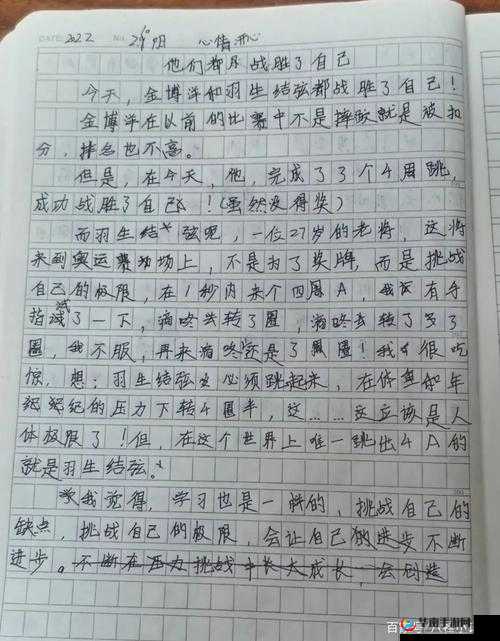 DATE 2022 No. 29° 阴 心情 开心
他们都是战胜了自己
今天，金博洋和羽生结弦都战胜了自己！
金博洋在以前的比赛中不是摔跤就是被扣
分，排名也不高。
但是，在今天，他，完成了3个4周跳，
成功战胜了自己！（虽然没得奖）
而羽生结弦呢，一位27岁的老将，这将
来到奥运赛场上，不是为了奖牌，而是挑战
自己的极限，在1秒内来个四周A，我 有手
指 了一下，滴咚 转了 圈，滴咚去转了3
圈，我不服，再来滴咚 是了 圈！我 很吃
惊，想：羽生结弦 必须跳起来，在体重和年
纪的压力下转4圈半，这……这应该是人
体极限了！但，在这个世界上唯一跳出4A的
就是羽生结弦。
我觉得，学习也是一样的，挑战自己的
缺点，挑战自己的极限，会让自己 进步不断
进步。不断在压力挑战中长大成长，会创造
华南手游网